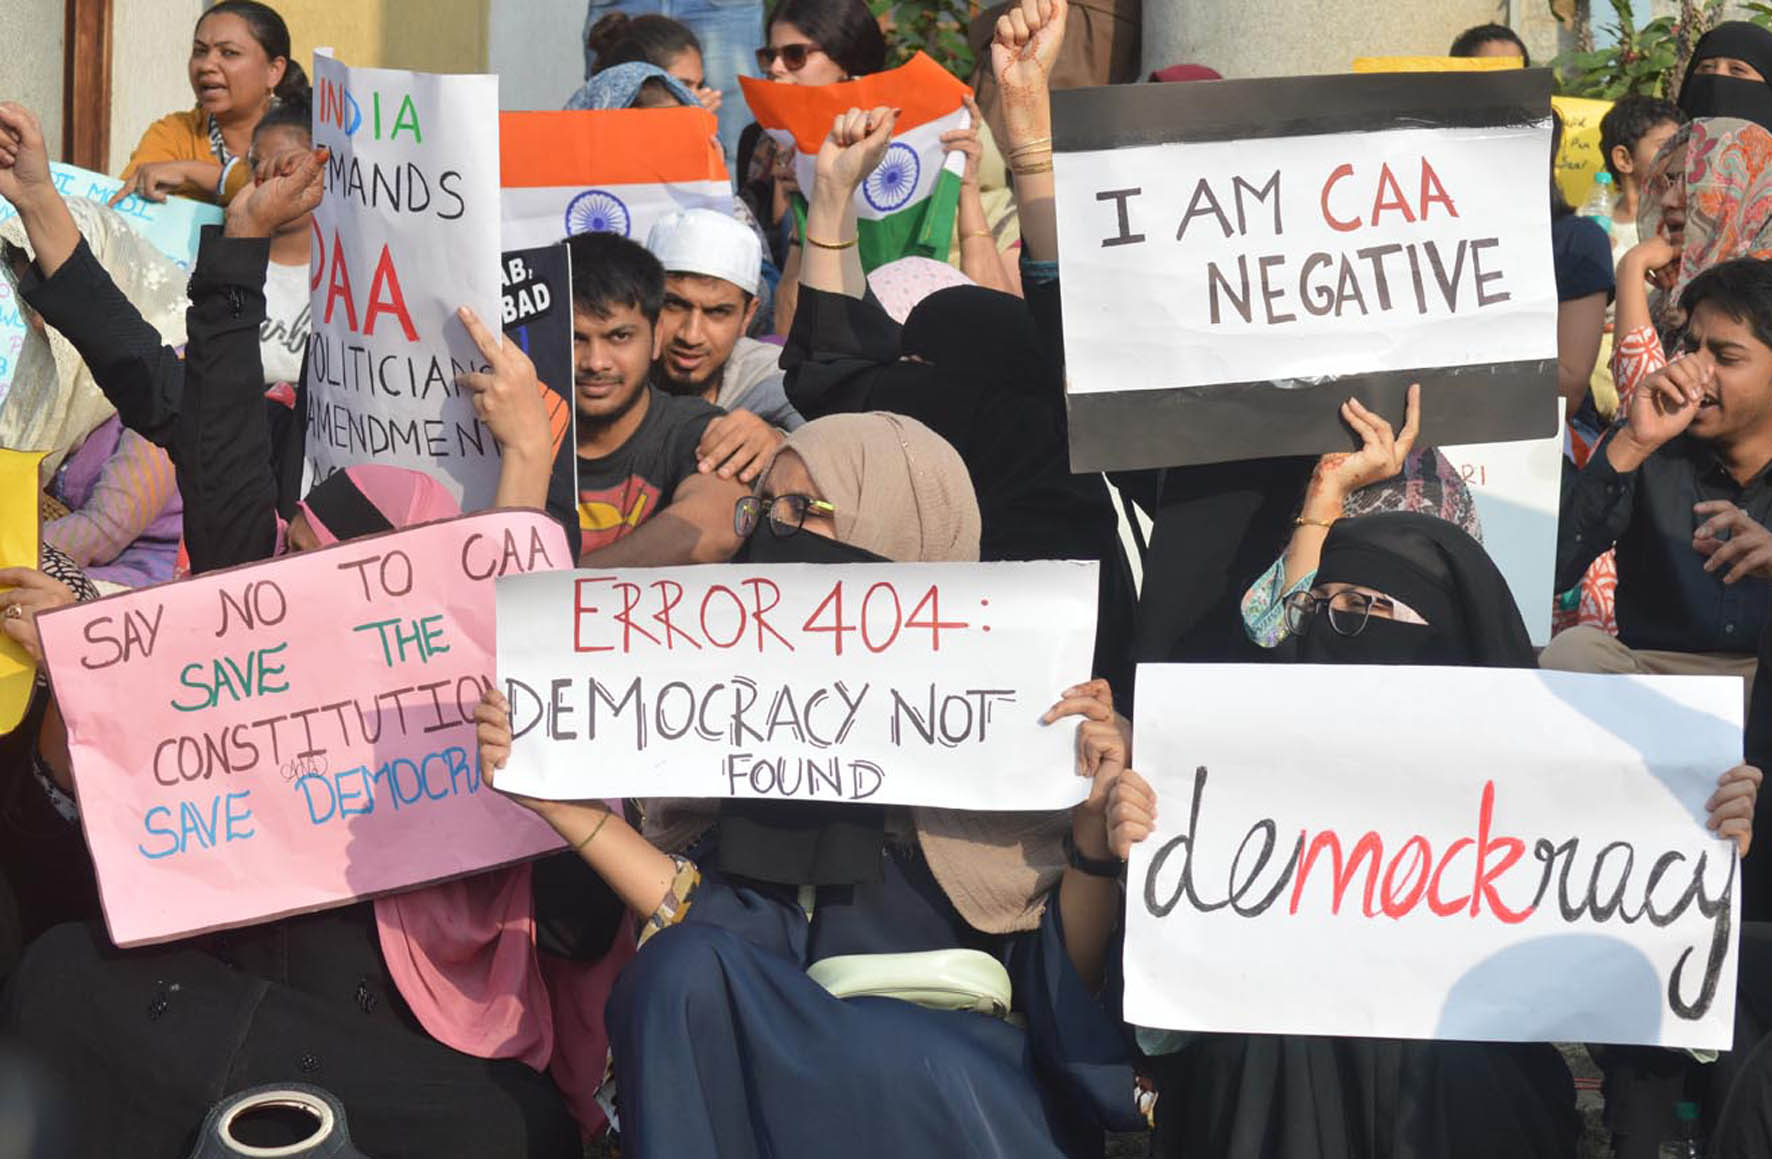 INDIA
EMANDS
PAA
POLITICIANS
AMENDMENT
AB,
BAD
I AM CAA
NEGATIVE
SAY NO TO CAA
SAVE THE
CONSTITUTION
AND
SAVE DEMOCRA
ERROR 404:
DEMOCRACY NOT
FOUND
demockracy
RI